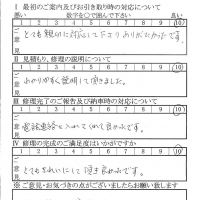 Ⅰ 最初のご案内及びお引き取り時の対応について
悪い 数字を○で囲んで下さい 良い
1 2 3 4 5 6 7 8 9 10
ご意見 とても親切に対応して下さりありがたかったです。
Ⅱ 見積もり、修理の説明について
1 2 3 4 5 6 7 8 9 10
ご意見 わかりやすく説明して頂きました。
Ⅲ 修理完了のご報告及び納車時の対応について
1 2 3 4 5 6 7 8 9 10
ご意見 電話連絡を入れてくれて良かったです。
Ⅳ 修理の完成のご満足度はいかがですか
1 2 3 4 5 6 7 8 9 10
ご意見 とてもきれいにして頂き良かったです。
※ご意見・お気づきの点がございましたらお願い致します